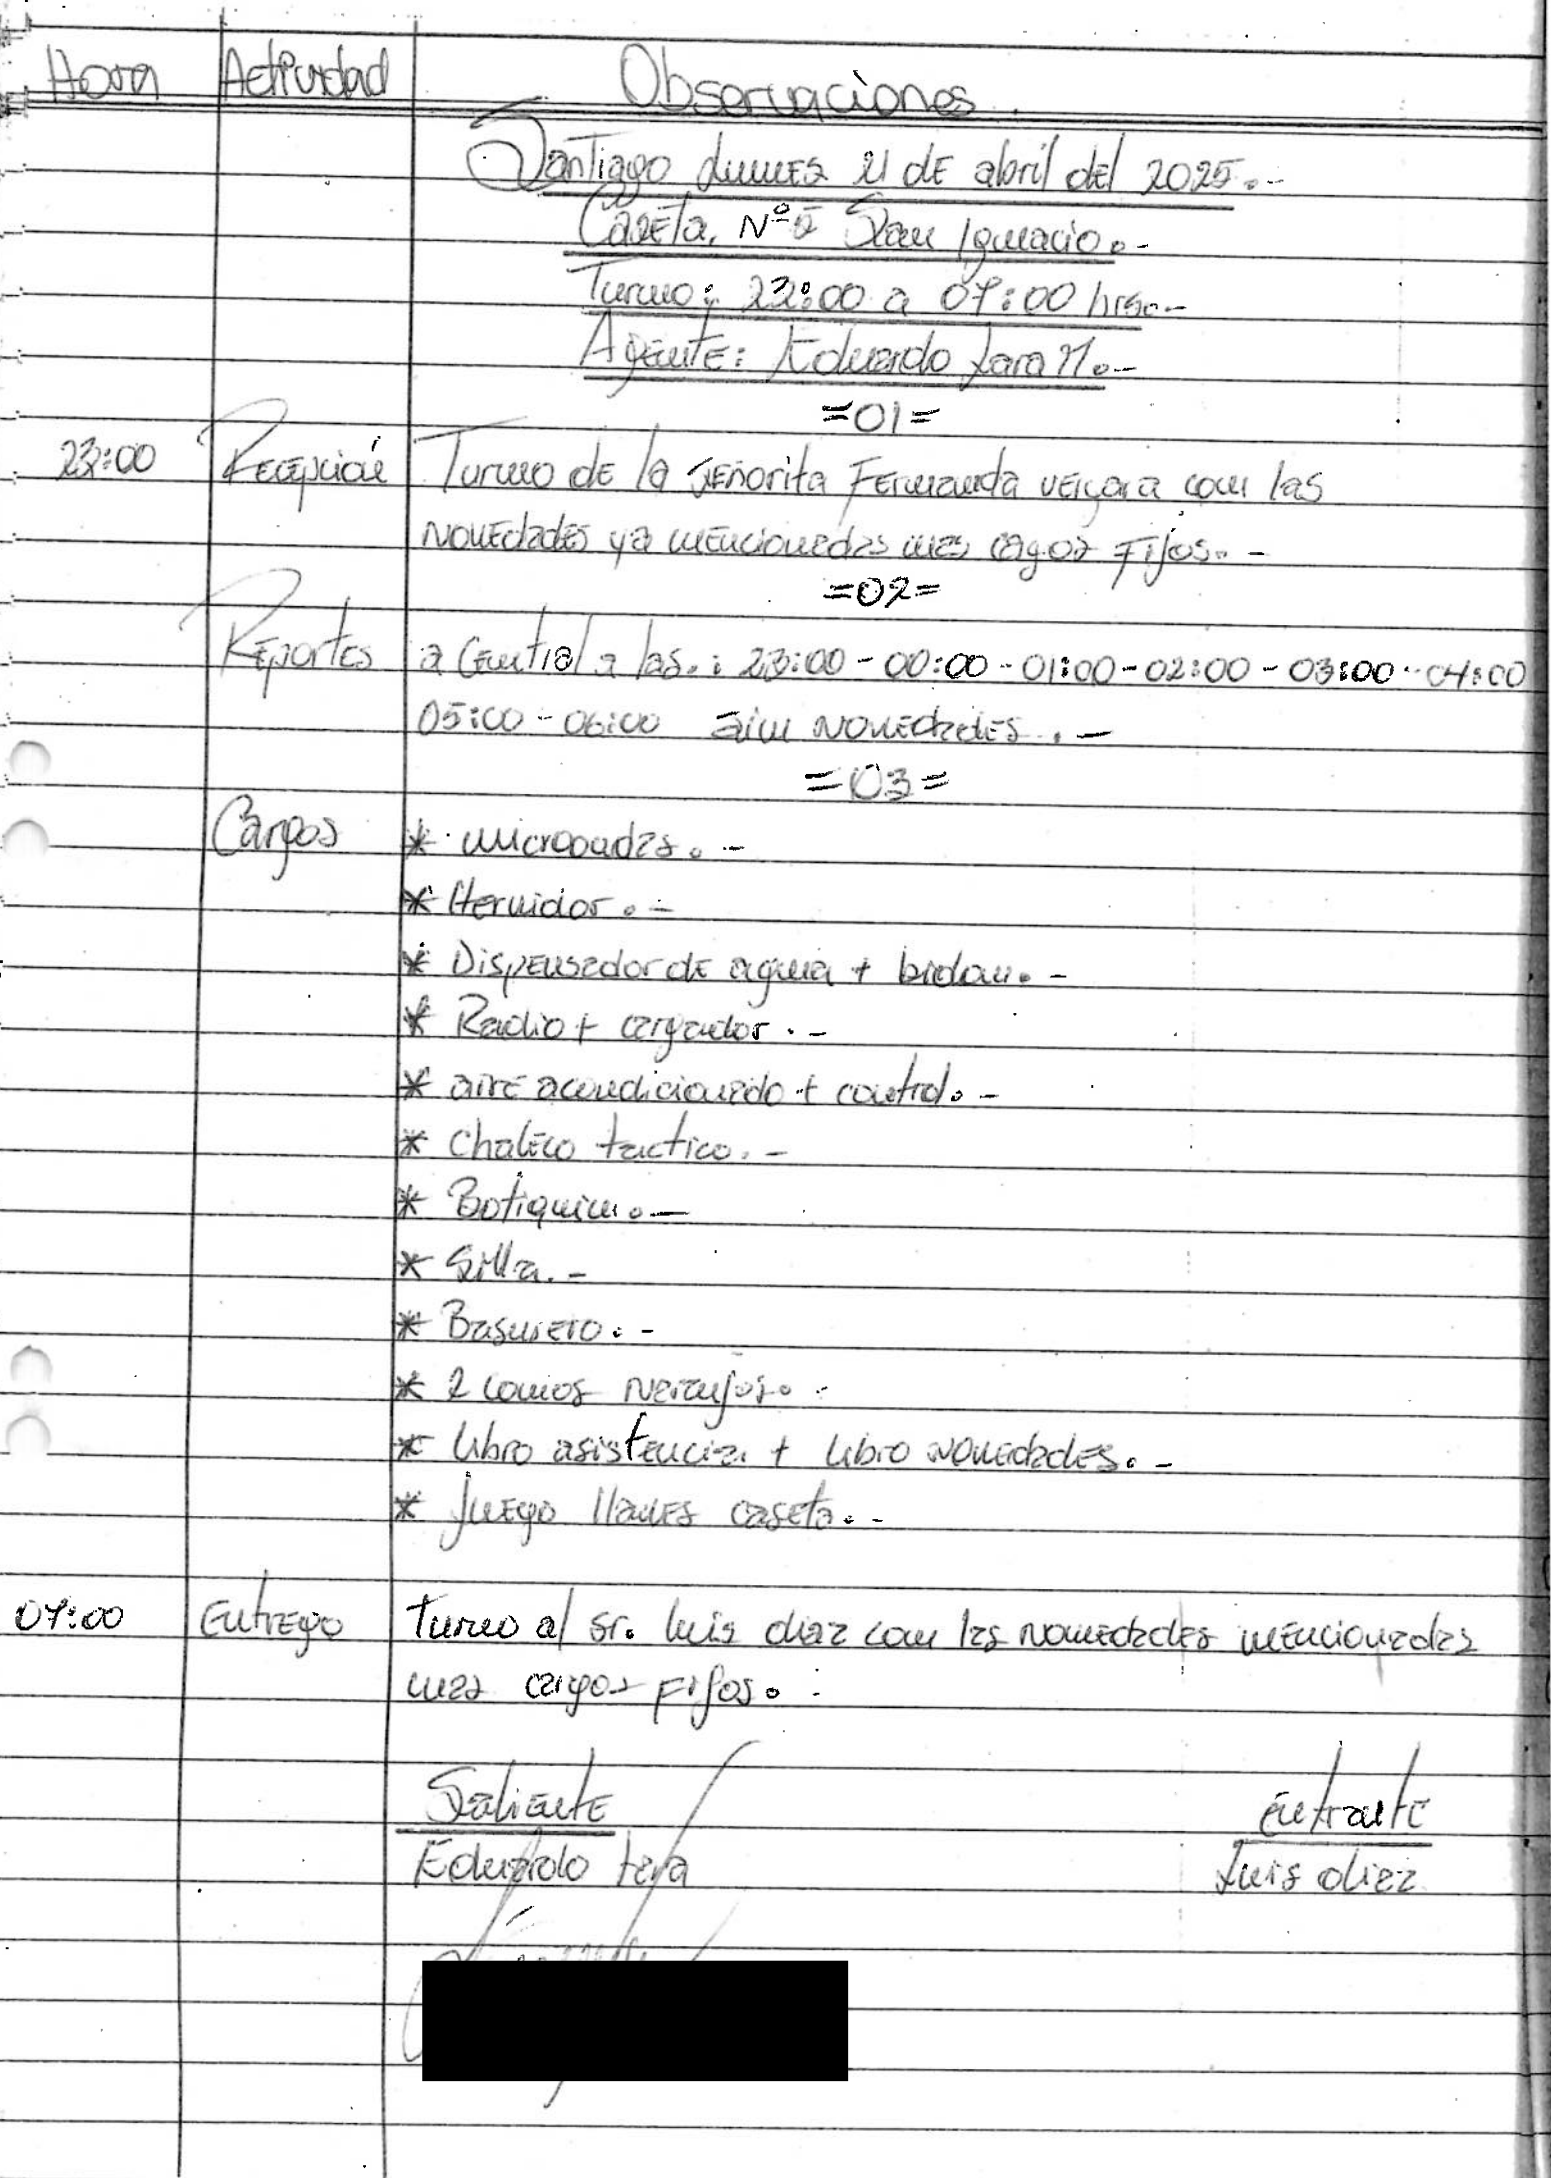 Hora Actividad Observaciones
Santiago lunes 21 de abril del 2025.-
Caseta Nº5 San Ignacio.-
Turno: 22:00 a 07:00 hrs.-
Agente: Eduardo Jara M.-
=01=
23:00 Recepción Turno de la señorita Fernanda vergara con las
novedades ya mencionadas mas cagos Fijos.-
=02=
Reportes a Central a las.: 23:00 - 00:00 - 01:00 - 02:00 - 03:00 - 04:00
05:00 - 06:00 sin novedades.-
=03=
Cargos * microondas.-
* Hervidor.-
* Dispensador de agua + bidon.-
* Radio + cargador.-
* aire acondicionado + control.-
* Chaleco tactico.-
* Botiquin.-
* Silla.-
* Basurero.-
* 2 conos naranjos.-
* libro asistencia + libro novedades.-
* juego llaves caseta.-
07:00 Entrego Turno al sr. luis diaz con las novedades mencionadas
mas cargos fijos.-
Saliente Entrante
Eduardo Jara Luis diaz